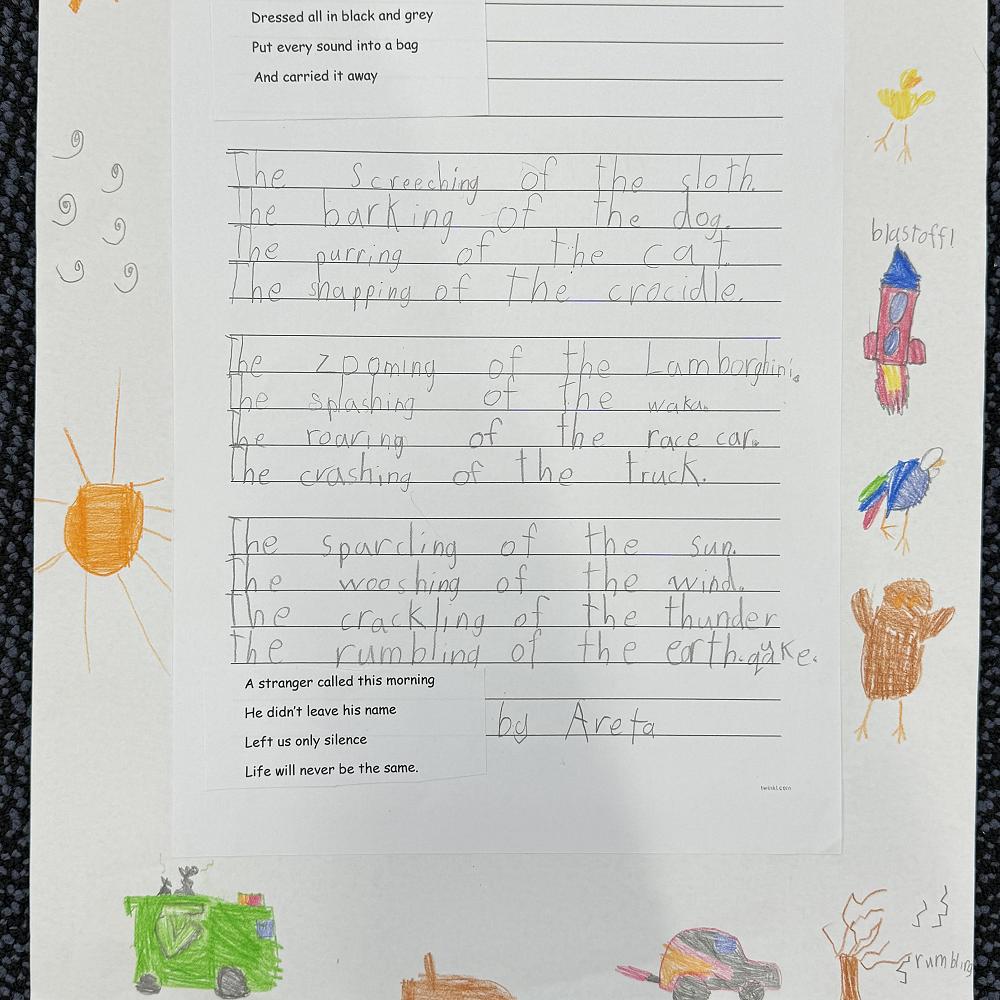 Dressed all in black and grey
Put every sound into a bag
And carried it away
The Screeching of the sloth.
The barking of the dog.
The purring of the cat.
The snapping of the crocidle.
blastoff!
The zooming of the Lamborghini.
The splashing of the waka.
The roaring of the race car.
The crashing of the truck.
The sparcling of the sun.
The wooshing of the wind.
The crackling of the thunder
The rumbling of the earth.qake.
A stranger called this morning
He didn't leave his name
Left us only silence
Life will never be the same.
by Areta
twinkl.com
rumbling